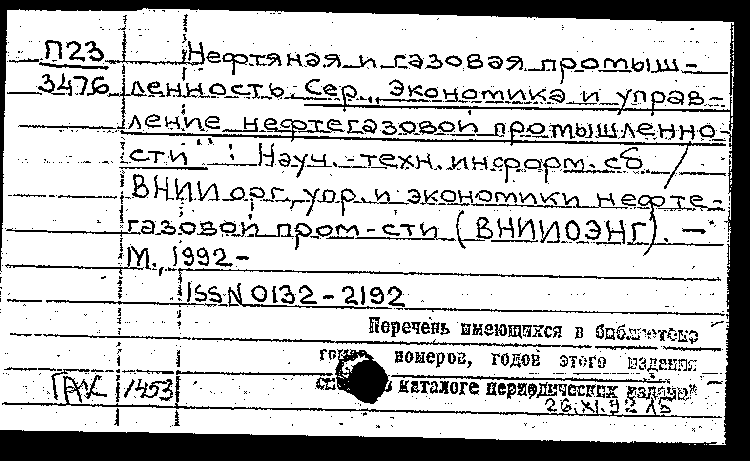 П23 Нефтяная и газовая промыш-
3476 ленность. Сер. „Экономика и управ-
ление нефтегазовой промышленно-
сти": Науч.-техн. информ. сб. /
ВНИИ орг., упр. и экономики нефте-
газовой пром-сти (ВНИИОЭНГ). —
М., 1992-
ISSN 0132-2192
Перечень имеющихся в библиотеке
номеров, годов этого издания
в каталоге периодических изданий
1453 26.XI.92